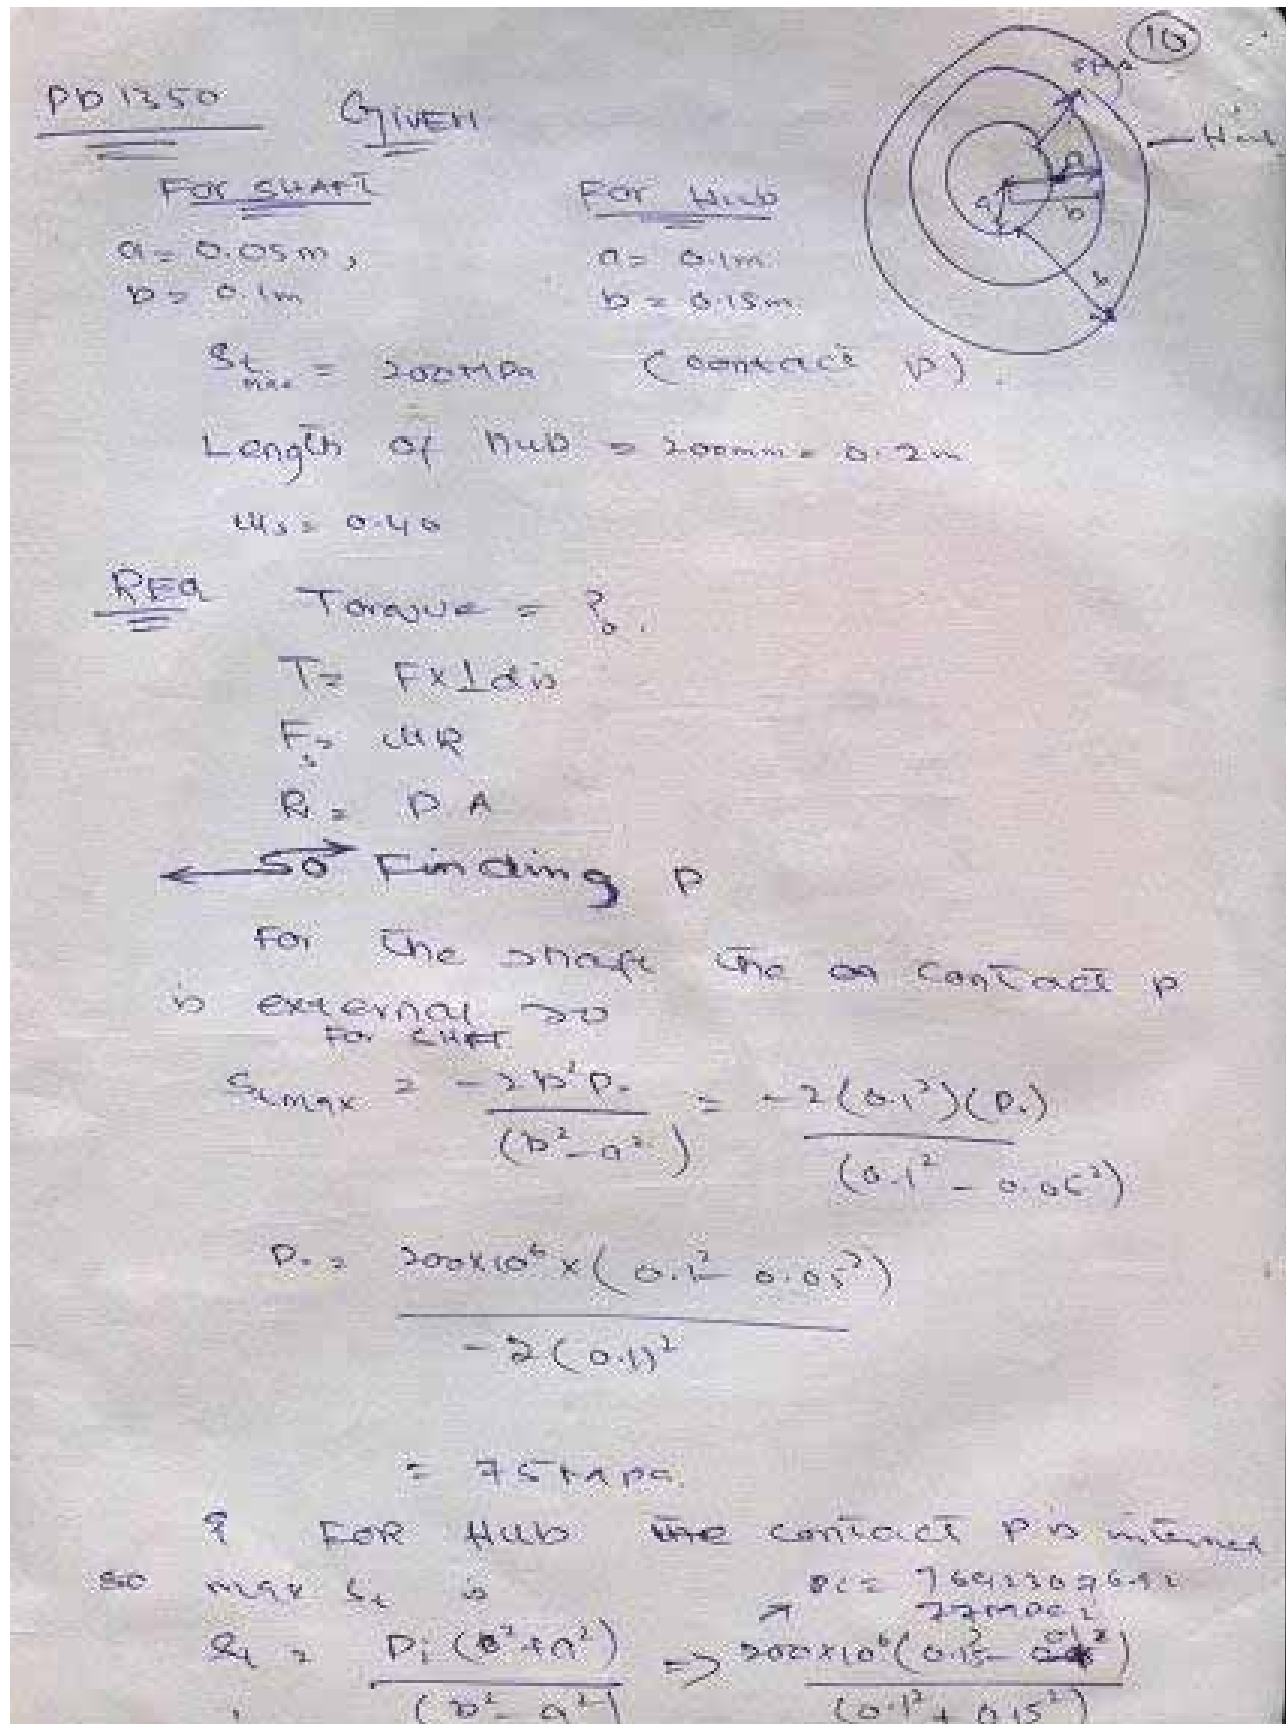 10
PD 1350 GIVEN
Hub
FOR SHAFT FOR Hub
a = 0.05m, a = 0.1m
b = 0.1m b = 0.15m
a b b
St max = 200MPa (contact p)
Length of hub = 200mm = 0.2m
μs = 0.40
REQ Torque = ?
T = F×⊥dis
Fs = μR
R = P.A
So Finding P
For the shaft the contact p
is external so
For SHAFT
Stmax = -2b²P₀ / (b²-a²) = -2(0.1²)(P₀) / (0.1² - 0.05²)
P₀ = 200×10⁶×(0.1² - 0.05²) / -2(0.1)²
= 75 MPa
& FOR Hub the contact P is internal
so max St is Pi = 76923076.92
77MPa
St = Pi (b²+a²) / (b²-a²) => 200×10⁶(0.15² - 0.1²) / (0.1² + 0.15²)